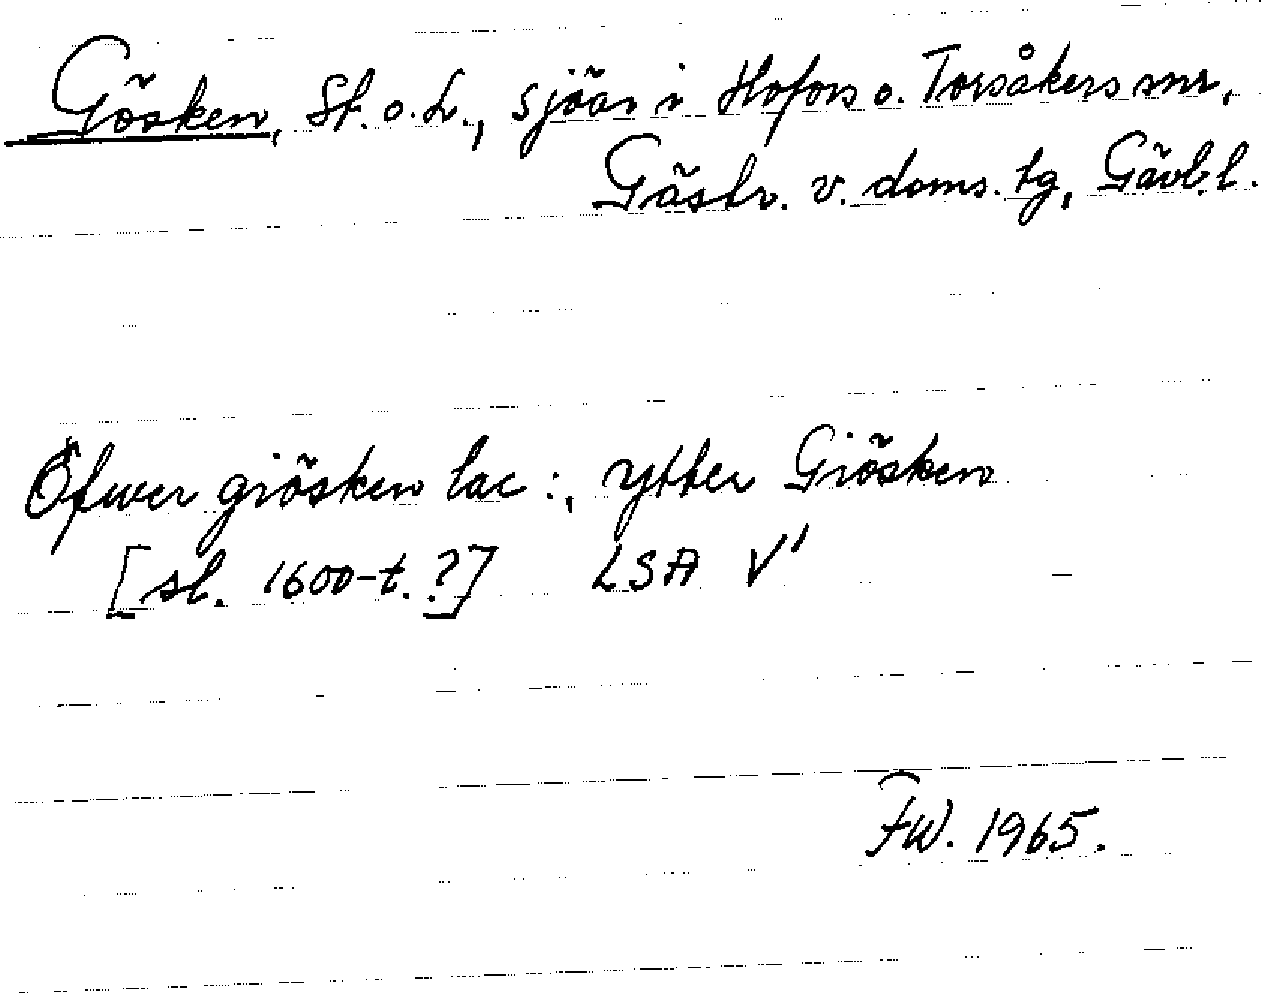 Gösken, St. o. L., sjöar i Hofors o. Torsåkers snr,
Gästr. v. doms. tg, Gävl. l.
Öfwer giösken lac:, ytter Giösken
[sl. 1600-t. ?] LSA V¹
FW. 1965.